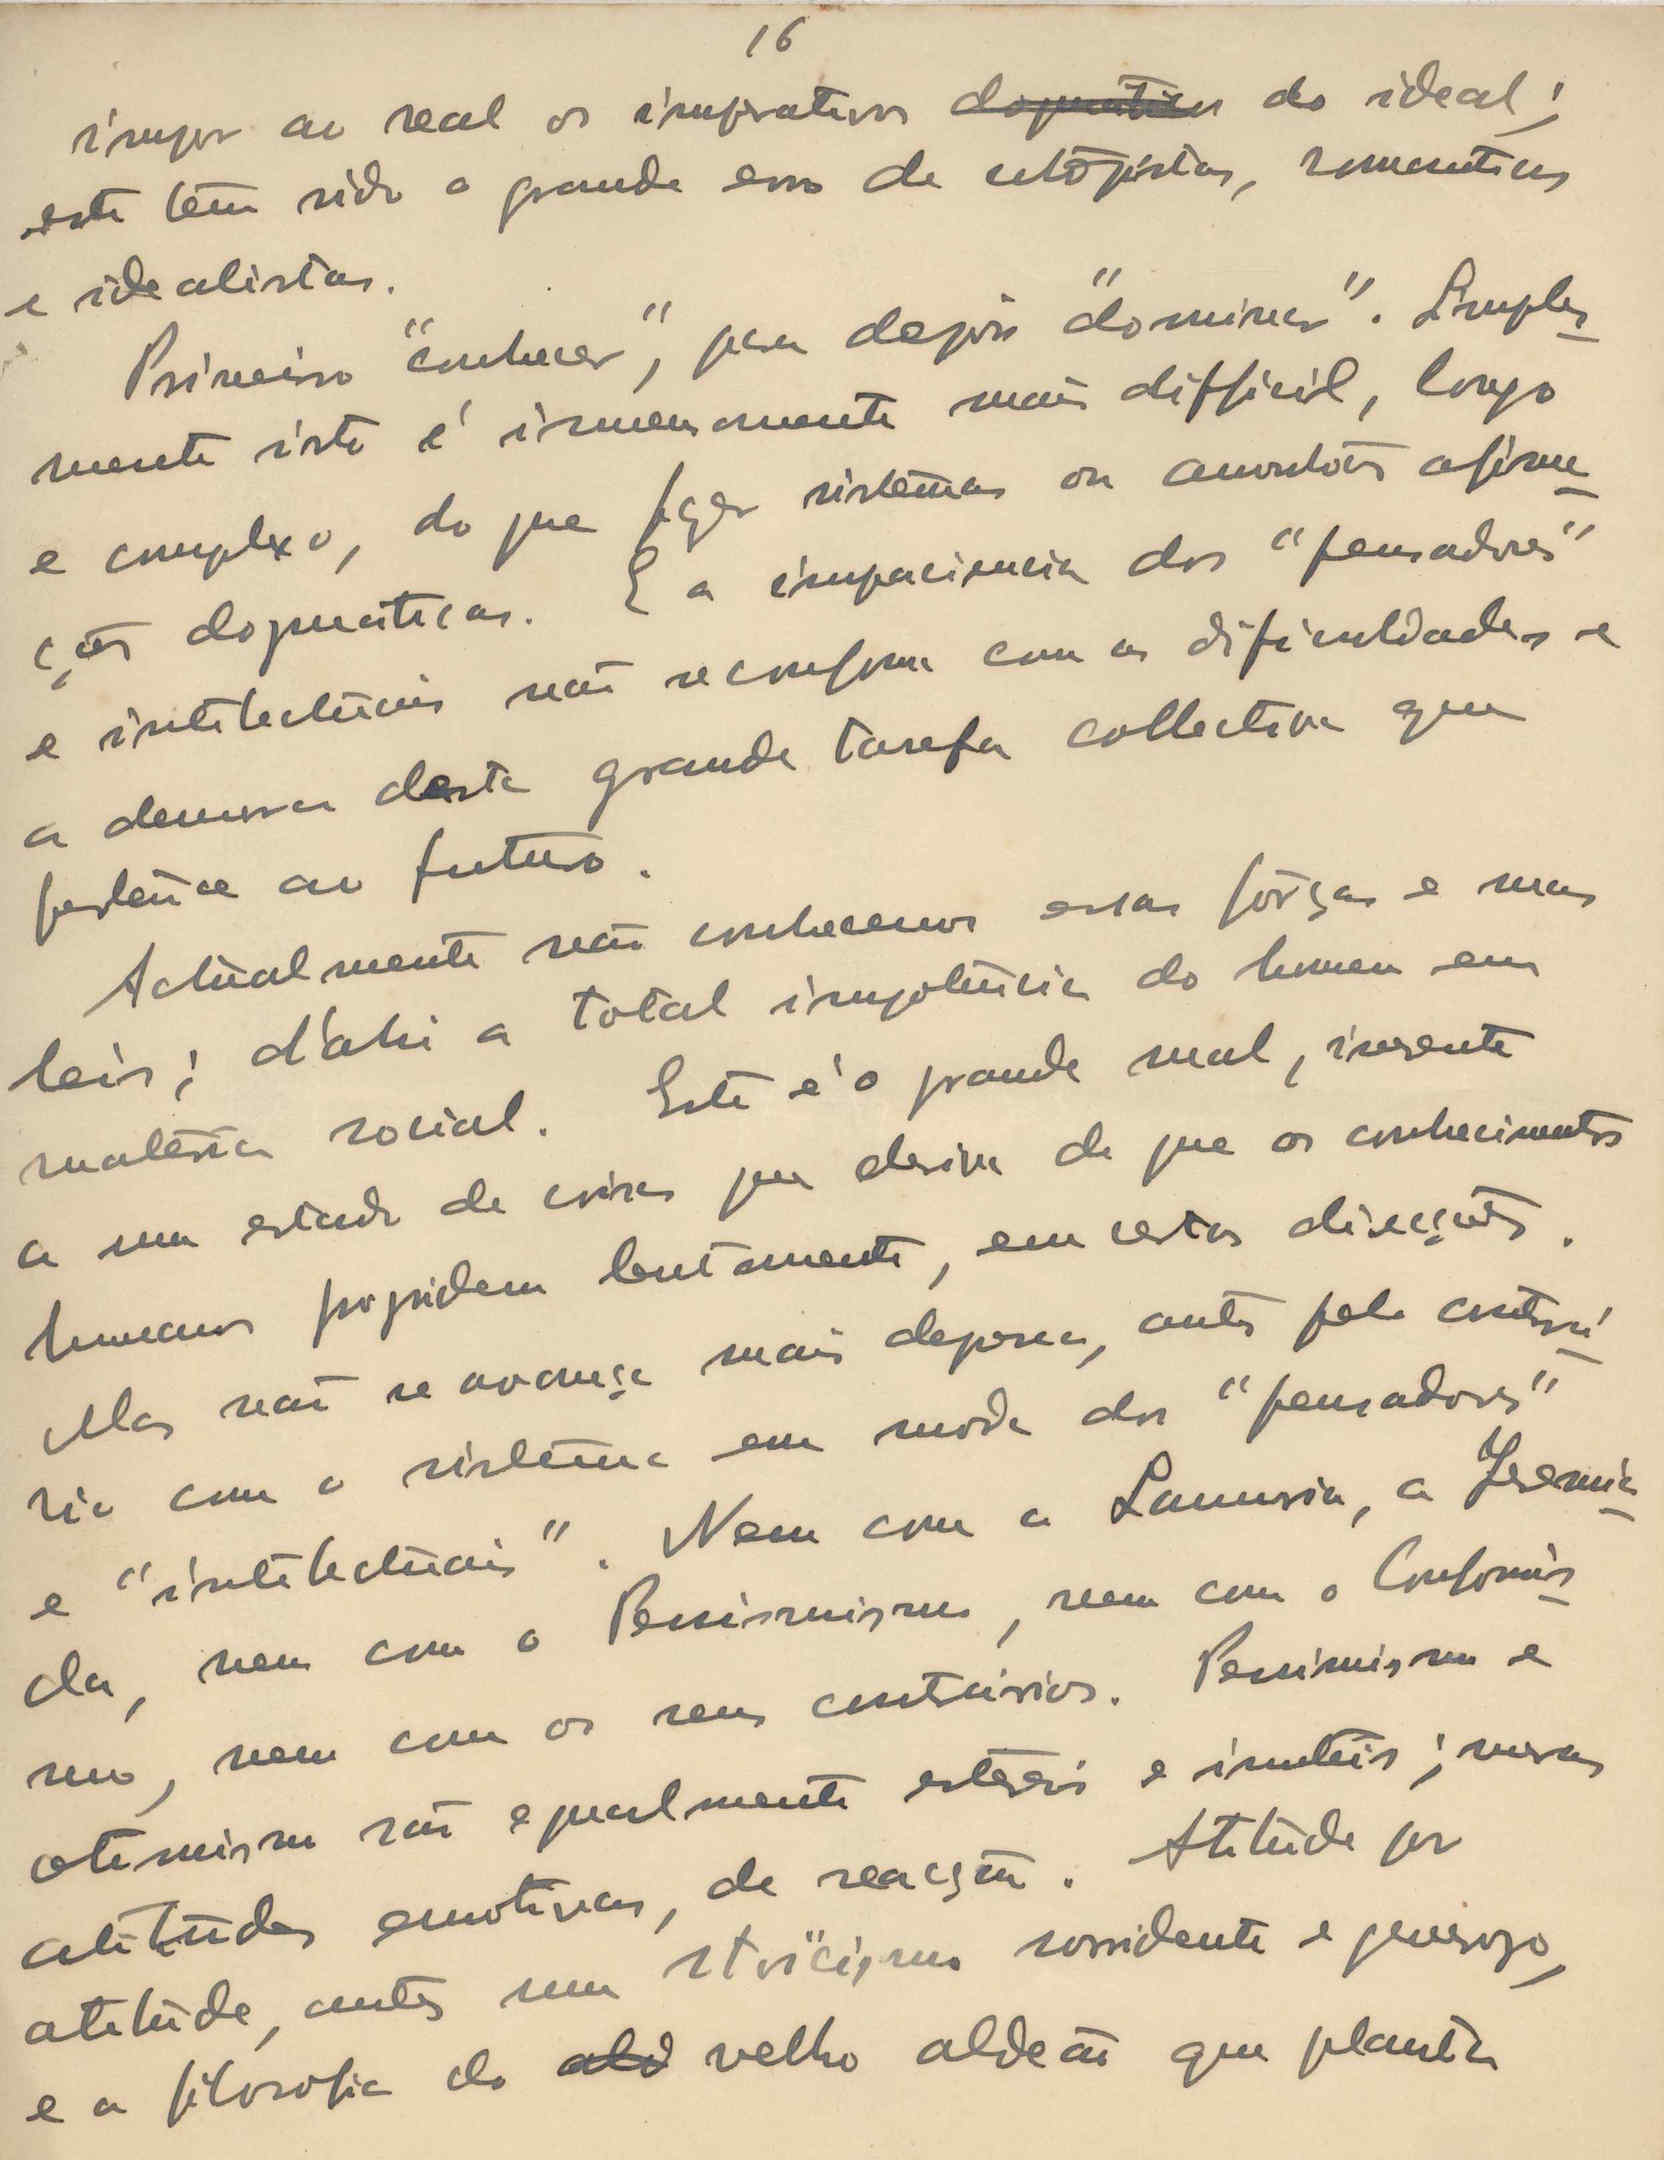 16
impor ao real os imperativos dogmáticos do ideal;
este tem sido o grande erro de utopistas, romanticos
e idealistas.
Primeiro "conhecer", para depois "dominar". Simples-
mente isto é imensamente mais difficil, longo
e complexo, do que fazer sistemas ou amontoar afirma-
ções dogmáticas. E a impaciencia dos "pensadores"
e intelectuais não se conforma com as dificuldades e
a demora desta grande tarefa collectiva que
pertence ao futuro.
Actualmente não conhecemos essas fôrças e suas
leis; d'ahi a total impotência do homem em
matéria social. Este é o grande mal, inerente
a um estado de coisas que deriva de que os conhecimentos
humanos progridem lentamente, em certas direcções.
Mas não se avança mais depressa, antes pelo contrá-
rio com o sistema em moda dos "pensadores"
e "intelectuais". Nem com a Lamuria, a Jeremia-
da, nem com o Pessimismo, nem com o Conformis-
mo, nem com os seus contrários. Pessimismo e
otimismo são egualmente estéreis e inuteis; meras
atitudes emotivas, de reacção. Atitude por
atitude, antes um stoïcismo sorridente e generoso,
e a filosofia do ald velho aldeão que planta